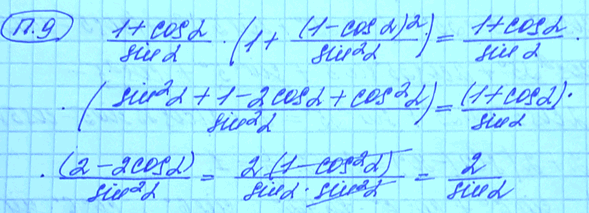 П.9 (1+cosα)/sinα · (1 + (1-cosα)²/sin²α) = (1+cosα)/sinα ·
· ((sin²α + 1 - 2cosα + cos²α)/sin²α) = (1+cosα)/sinα ·
· (2-2cosα)/sin²α = 2(1-cos²α)/(sinα · sin²α) = 2/sinα